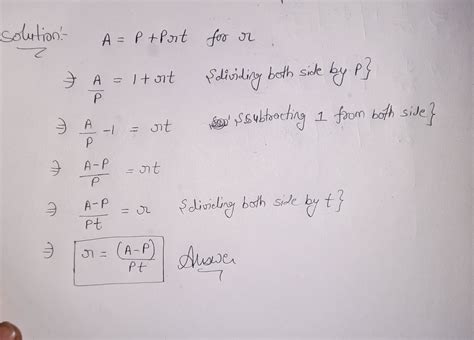 Solution:- A = P + Prt for r
⇒ A/P = 1 + rt {dividing both side by P}
⇒ A/P - 1 = rt {Subtracting 1 from both side}
⇒ A-P/P = rt
⇒ A-P/Pt = r {dividing both side by t}
⇒ r = (A-P)/Pt Answer